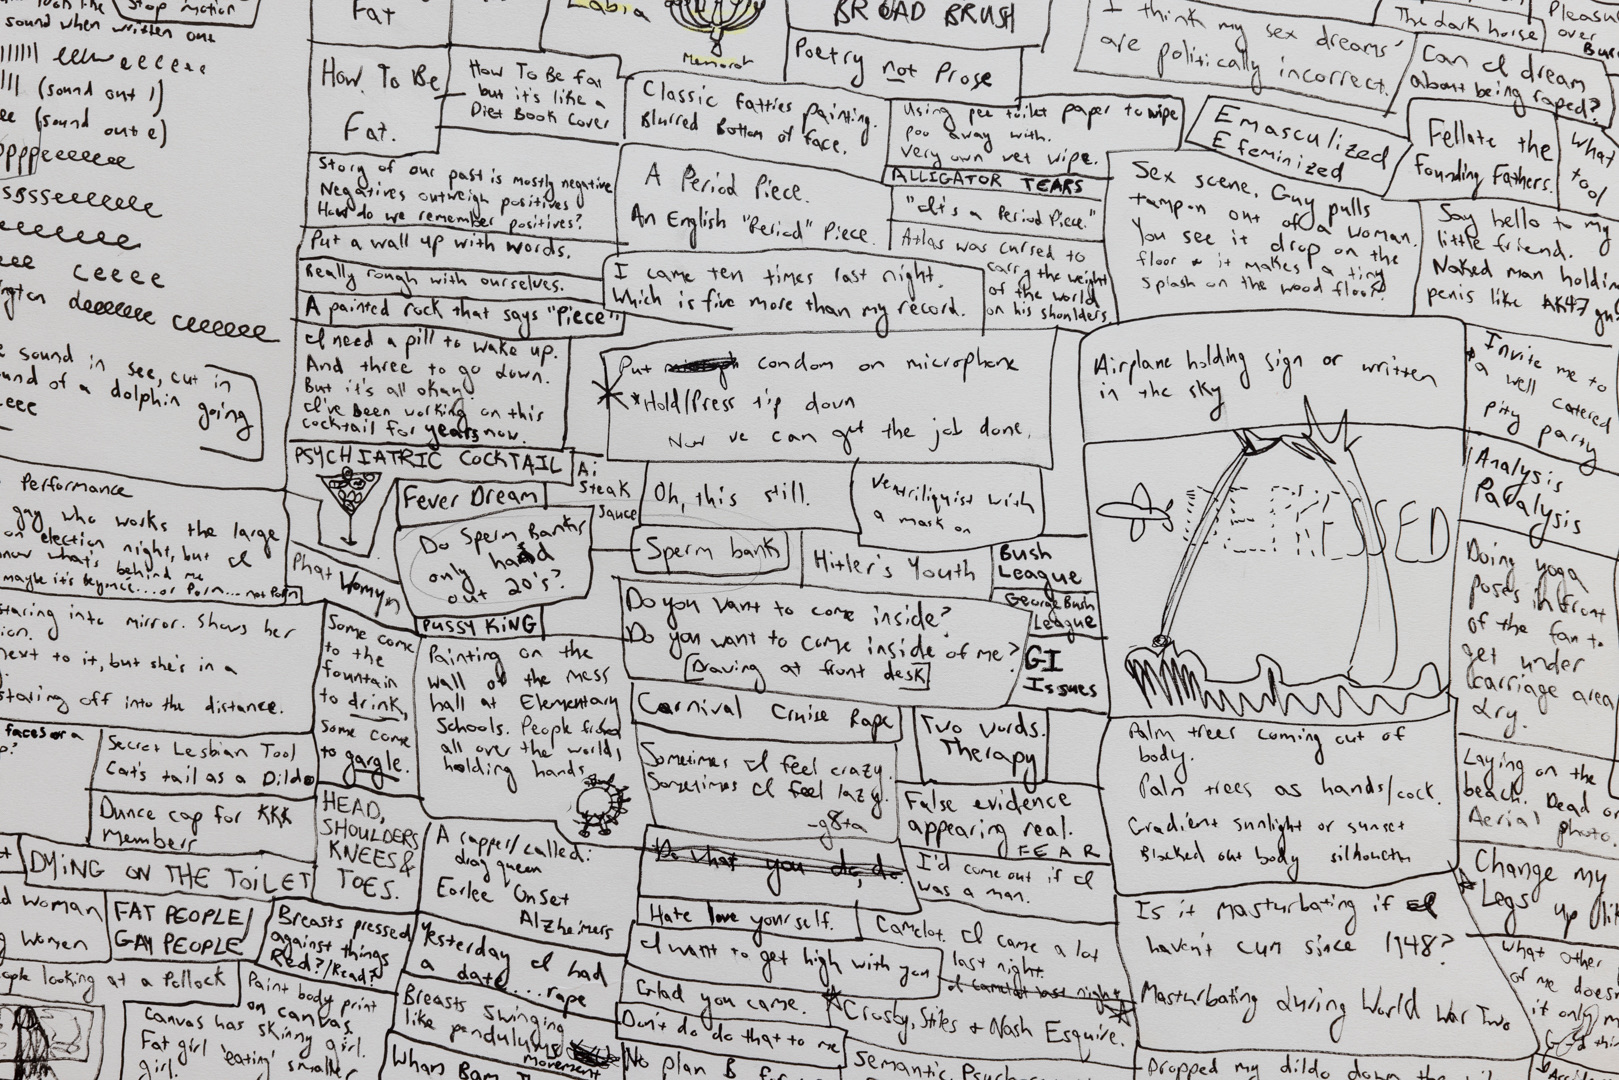 Stop motion
sound when written out
(sound out l)
(sound out e)
sound in see, cut in
sound of a dolphin going
Performance
guy who works the large
on election night, but I
know what's behind me
maybe it's Beyoncé...or Porn...not Porn
staring into mirror. Shows her
next to it, but she's in a
staring off into the distance.
faces or a
Secret Lesbian Tool
Cat's tail as a Dildo
Dunce cap for KKK
Members
DYING ON THE TOILET
woman
Women
FAT PEOPLE/
GAY PEOPLE
Breasts pressed
against things
Red?/Read?
looking at a Pollock
Paint body print
on canvas
Canvas has skinny girl.
Fat girl 'eating' smaller
girl.
Fat
How To Be
Fat.
How To Be fat
but it's like a
Diet Book Cover
Story of our past is mostly negative
Negatives outweigh positives
How do we remember positives?
Put a wall up with words.
Really rough with ourselves.
A painted rock that says "Piece"
I need a pill to wake up.
And three to go down.
But it's all okay
I've been working on this
cocktail for years now.
PSYCHIATRIC COCKTAIL
Ai
Steak
Sauce
Fever Dream
Do Sperm Banks
only hand
out 20's?
Phat Womyn
PUSSY KING
Some come
to the
fountain
to drink,
Some come
to gargle.
Painting on the
wall of the mess
hall at Elementary
Schools. People from
all over the world,
holding hands
HEAD,
SHOULDERS
KNEES &
TOES.
A rapper/called:
drag queen
Earlee OnSet
Alzheimers
Yesterday I had
a date....rape
Breasts Swinging
like pendulums
movement
Wham Bam
Labia
Menorah
BROAD BRUSH
Poetry not Prose
Classic fatties painting.
Blurred Bottom of face.
Using pee toilet paper to wipe
poo away with.
very own wet wipe.
ALLIGATOR TEARS
A Period Piece.
An English "Period" Piece.
"It's a Period Piece."
Atlas was cursed to
carry the weight
of the world
on his shoulders
I came ten times last night.
Which is five more than my record.
Put condom on microphone
*Hold/Press tip down
Now we can get the job done.
Oh, this still.
Ventriliquist with
a mask on
Sperm bank
Hitler's Youth
Bush
League
George Bush
League
GI
Issues
Do you want to come inside?
Do you want to come inside of me?
[Drawing at front desk]
Carnival Cruise Rape
Two words.
Therapy
Sometimes I feel crazy.
Sometimes I feel lazy.
-g8ta
False evidence
appearing real.
FEAR
Do what you do, do.
I'd come out if I
was a man.
Hate love yourself.
Camelot. I came a lot
last night.
I Camelot last night
I want to get high with you
Glad you came.
Crosby, Stiles & Nash Esquire.
Don't do do that to me
No plan B
Semantic
I think my sex dreams'
are politically incorrect.
The dark horse
Pleasure
over
Can I dream
about being raped?
Emasculized
Efeminized
Fellate the
founding Fathers.
What
tool
Sex scene. Guy pulls
tampon out of a woman.
You see it drop on the
floor & it makes a tiny
splash on the wood floor?
Say hello to my
little friend.
Naked man holding
penis like AK47
Airplane holding sign or written
in the sky
Invite me to
a well catered
pity party
Analysis
Paralysis
Doing yoga
poses in front
of the fan to
get under
carriage area
dry.
Palm trees coming out of
body.
Palm trees as hands/cock.
Gradient sunlight or sunset
Blacked out body silhouette
Laying on the
beach. Dead or
Aerial photo.
Change my
Legs up
Is it masturbating if I
haven't cum since 1948?
Masturbating during World War Two
what other
of me doesn
it only
Dropped my dildo down the